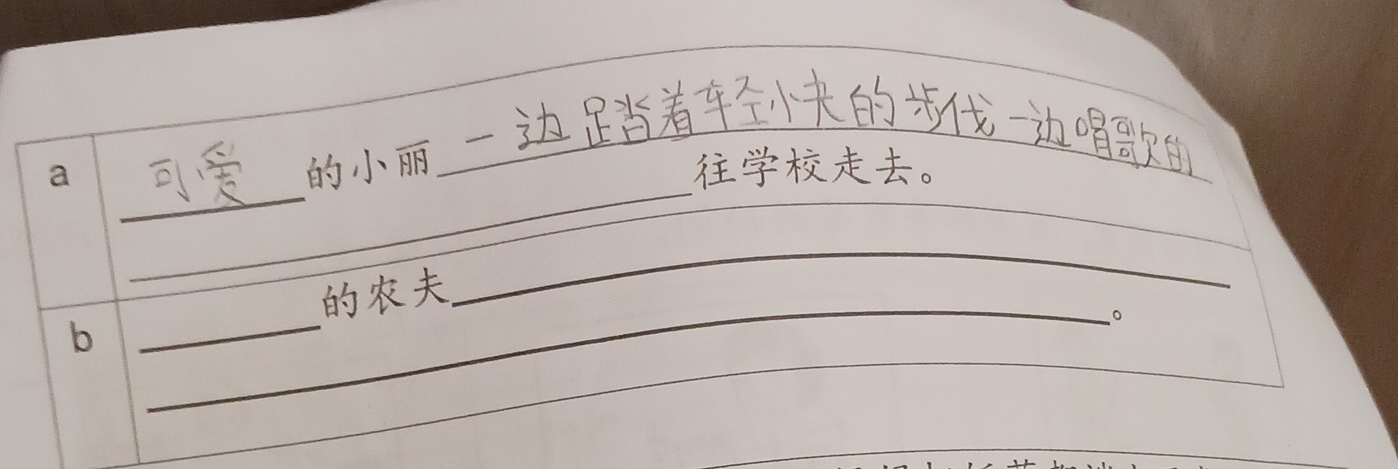 a 可爱的小丽一边踏着轻快的步伐一边唱歌的
往学校走去。
b 的农夫
。